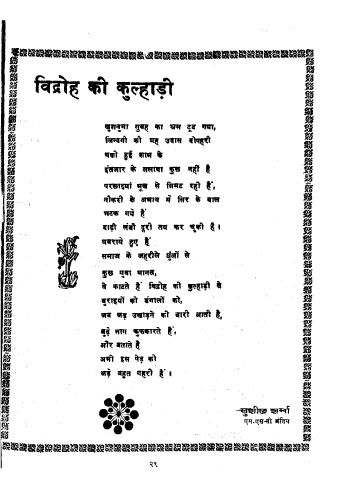 विद्रोह की कुल्हाड़ी
खुशनुमा सुबह का भ्रम टूट गया,
जिन्दगी की यह उदास दोपहरी
थकी हुई शाम के
इंतजार के अलावा कुछ नहीं है
परछाइयां भूख से सिमट रही हैं,
नौकरी के अभाव में सिर के बाल
भटक गये हैं
दाढ़ी लंबी दूरी तय कर चुकी है।
घबराये हुए हैं
समाज के जहरीले धुंओं से
कुछ युवा मानस,
वे काटते हैं विद्रोह की कुल्हाड़ी से
बुराइयों की डंगालों को,
जब जड़ उखाड़ने की बारी आती है,
बूढ़े नाग फुफकारते हैं,
और बताते हैं
अभी इस पेड़ की
जड़ें बहुत गहरी हैं।
सुशील शर्मा
एम.एस-सी अंतिम
२९